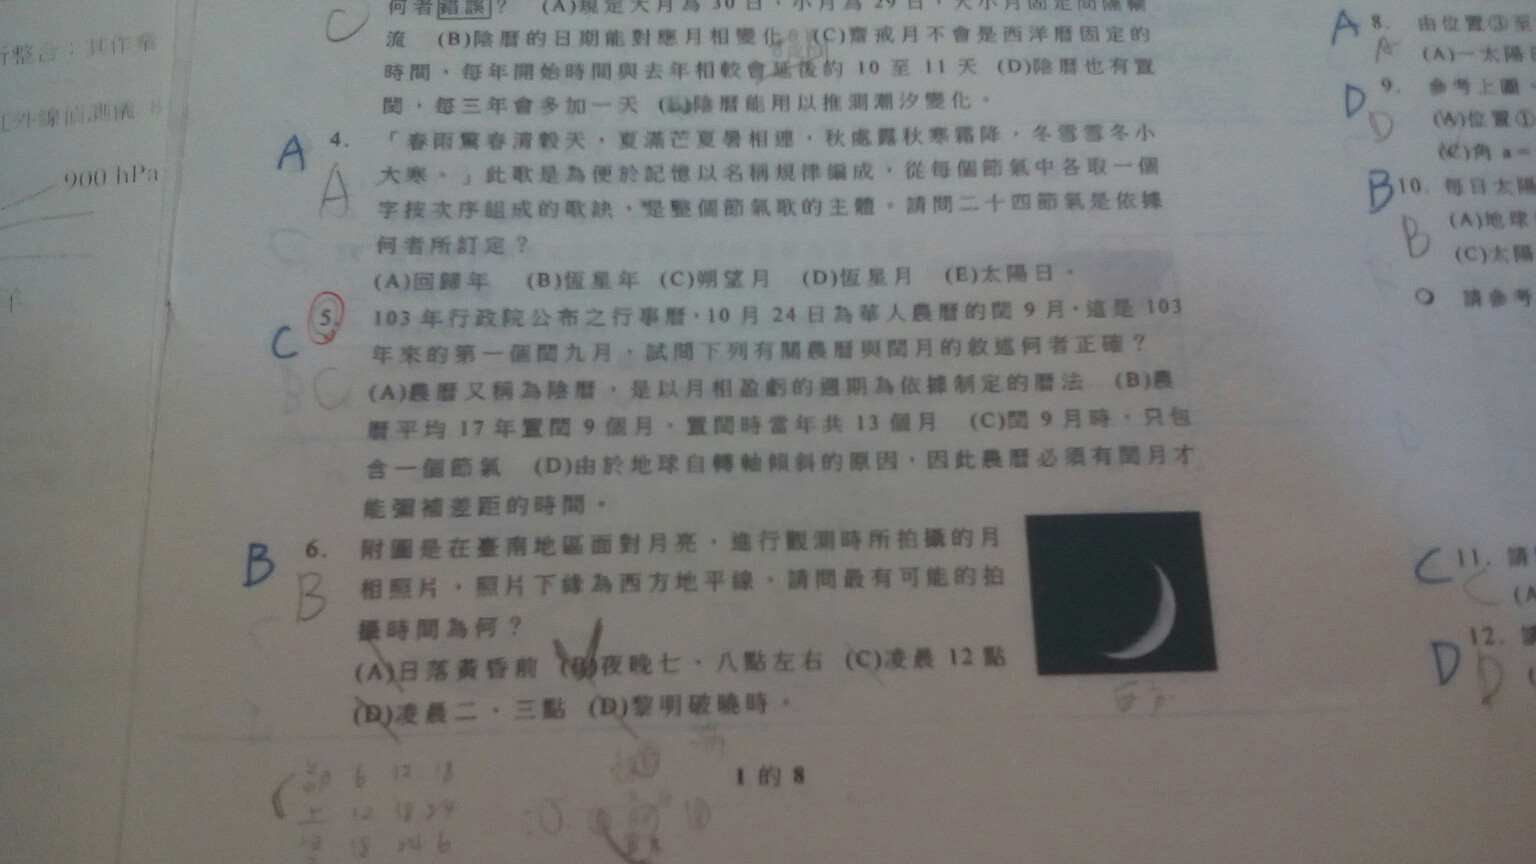 何者錯誤？ (A)規定大月為 30 日，小月為 29 日，大小月固定間隔輪
流 (B)陰曆的日期能對應月相變化 (C)齋戒月不會是西洋曆固定的
時間，每年開始時間與去年相較會延後約 10 至 11 天 (D)陰曆也有置
閏，每三年會多加一天 (E)陰曆能用以推測潮汐變化。
C
A
4. 「春雨驚春清穀天，夏滿芒夏暑相連，秋處露秋寒霜降，冬雪雪冬小
大寒。」此歌是為便於記憶以名稱規律編成，從每個節氣中各取一個
A
字按次序組成的歌訣，是整個節氣歌的主體。請問二十四節氣是依據
何者所訂定？
(A)回歸年 (B)恆星年 (C)朔望月 (D)恆星月 (E)太陽日。
C
5. 103 年行政院公布之行事曆，10 月 24 日為華人農曆的閏 9 月，這是 103
年來的第一個閏九月，試問下列有關農曆與閏月的敘述何者正確？
C
(A)農曆又稱為陰曆，是以月相盈虧的週期為依據制定的曆法 (B)農
曆平均 17 年置閏 9 個月，置閏時當年共 13 個月 (C)閏 9 月時，只包
含一個節氣 (D)由於地球自轉軸傾斜的原因，因此農曆必須有閏月才
能彌補差距的時間。
B
6. 附圖是在臺南地區面對月亮，進行觀測時所拍攝的月
B
相照片，照片下緣為西方地平線。請問最有可能的拍
攝時間為何？
(A)日落黃昏前 (B)夜晚七、八點左右 (C)凌晨 12 點
(D)凌晨二、三點 (D)黎明破曉時。
6 12 18
上 12 18 24
18 24 6
1 的 8
900 hPa
A
8. 由位置③至
A
(A)一太陽日
D
9. 參考上圖，
D
(A)位置①
(C)角 a =
B
10. 每日太陽
B
(A)地球
(C)太陽
請參考
C
11. 請
C
(A
D
12.
D